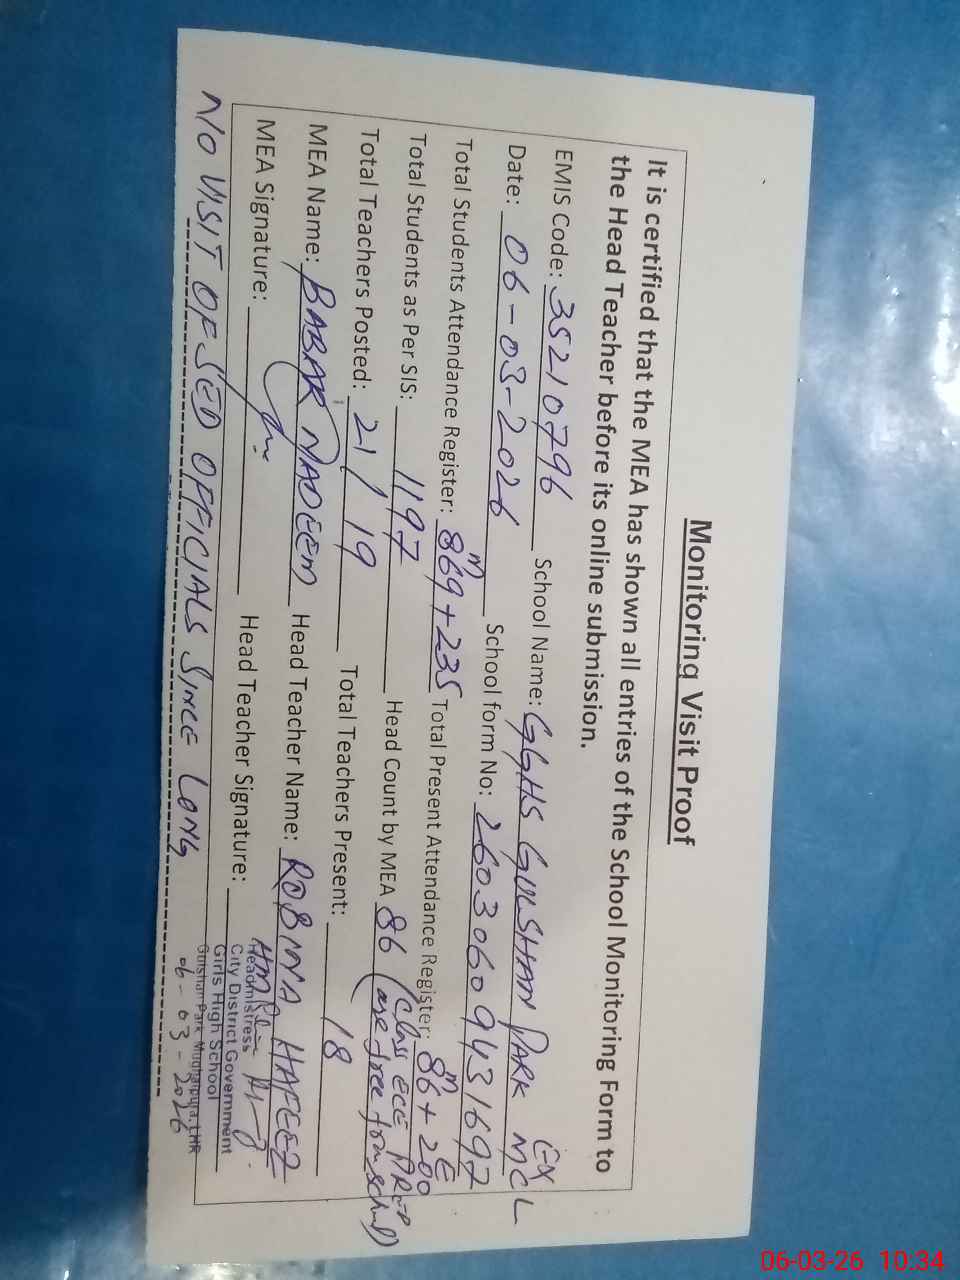 Monitoring Visit Proof
It is certified that the MEA has shown all entries of the School Monitoring Form to
the Head Teacher before its online submission.
EMIS Code: 35210796 School Name: GGHS GULSHAN PARK EX MCL
Date: 06-03-2026 School form No: 2603060943 1697
Total Students Attendance Register: 869 m + 235 Total Present Attendance Register: 86 m + 200 E
Total Students as Per SIS: 1197 Head Count by MEA 86 (Class ECE
are free from
Total Teachers Posted: 21/19 Total Teachers Present: 18
MEA Name: BABAR NADEEM Head Teacher Name: ROBINA HAFEEZ
MEA Signature: Head Teacher Signature:
Headmistress
City District Government
Girls High School
Gulshan Park Mughalpura, LHR
06-03-2026
N/O VISIT OF SED OFFICIALS SINCE LONG
06-03-26 10:34